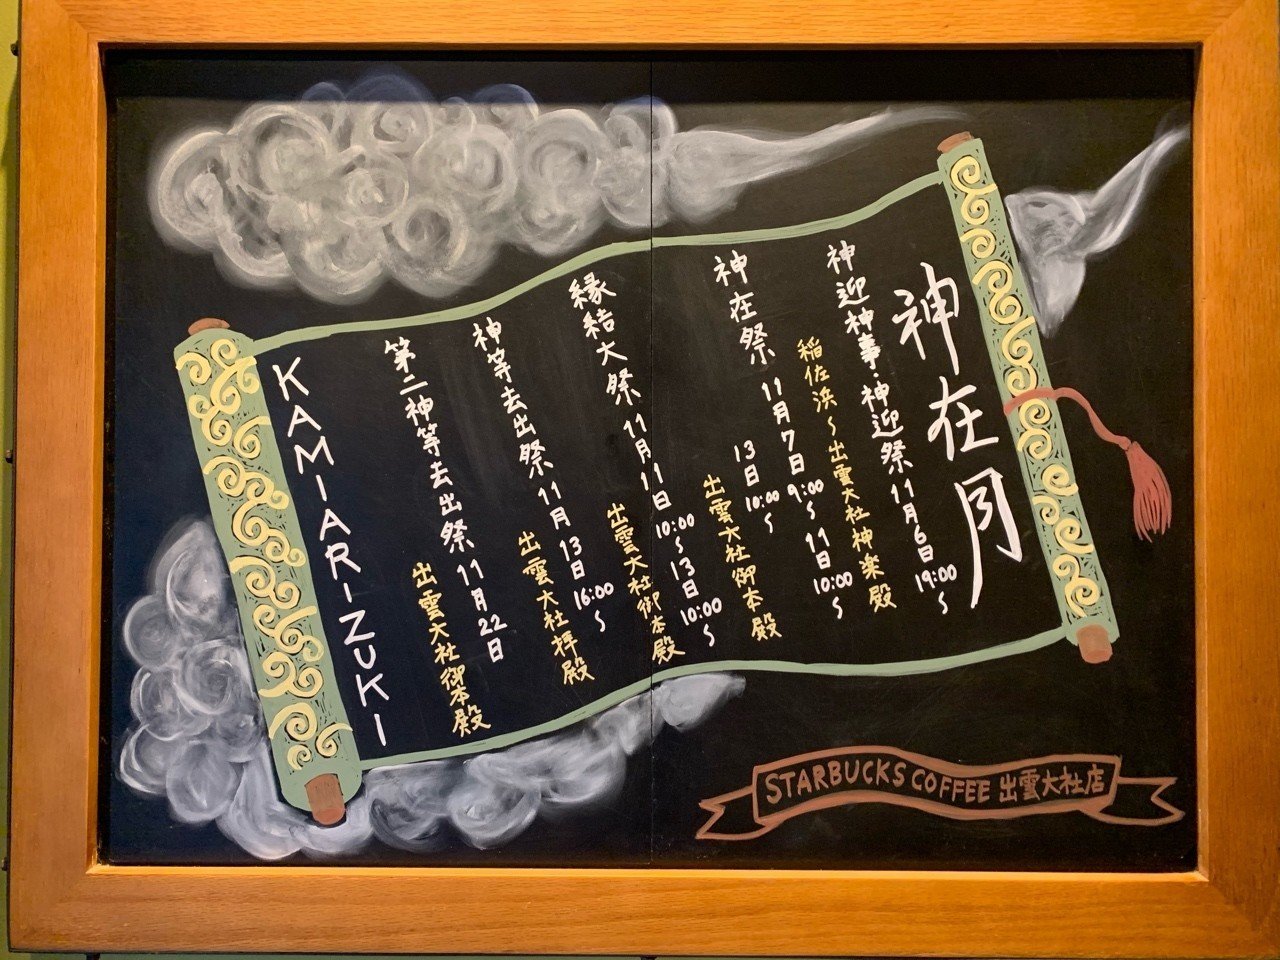 神在月
神迎神事・神迎祭 11月6日 19:00〜
稲佐浜〜出雲大社神楽殿
神在祭 11月7日 9:00〜 11日 10:00〜
13日 10:00〜
出雲大社御本殿
縁結大祭 11月11日 10:00〜 13日 10:00〜
出雲大社御本殿
神等去出祭 11月13日 16:00〜
出雲大社拝殿
第二神等去出祭 11月22日
出雲大社御本殿
KAMIARIZUKI
STARBUCKS COFFEE 出雲大社店